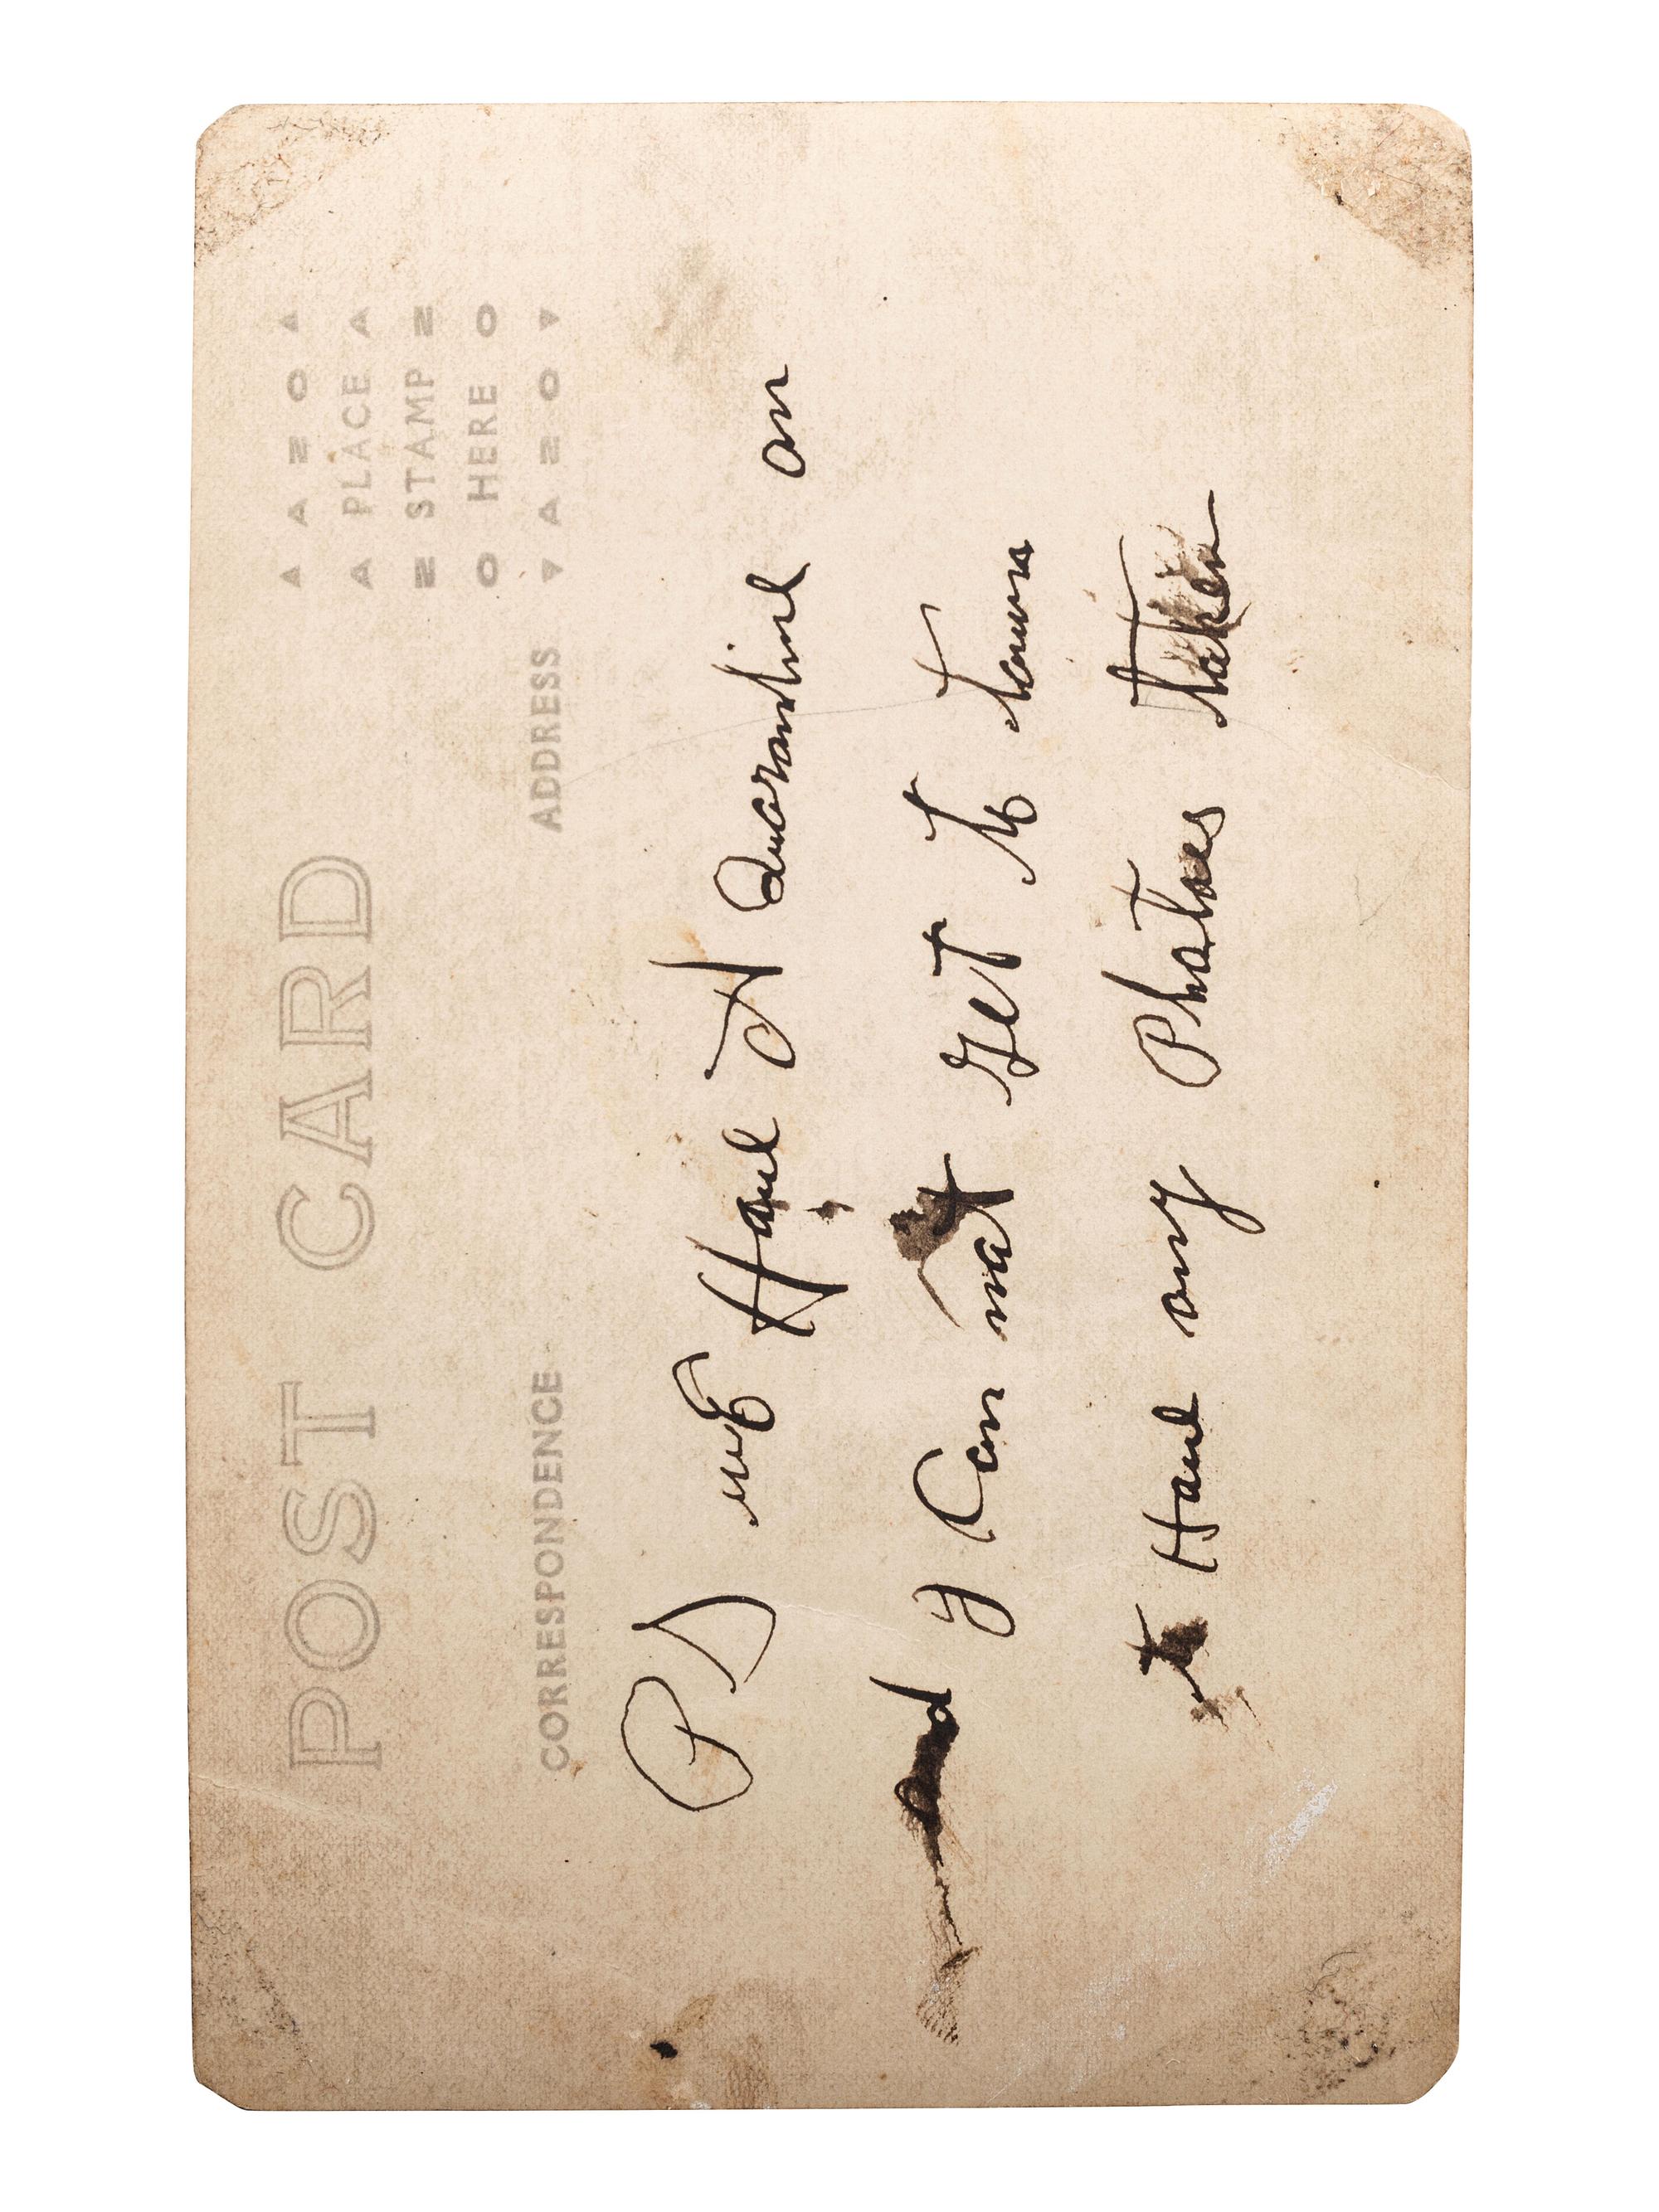 POST CARD
PLACE
STAMP
HERE
AZO
AZO
CORRESPONDENCE
ADDRESS
PS we Have A Quarantine on
and I Can not Get to town
to Have any Photoes taken